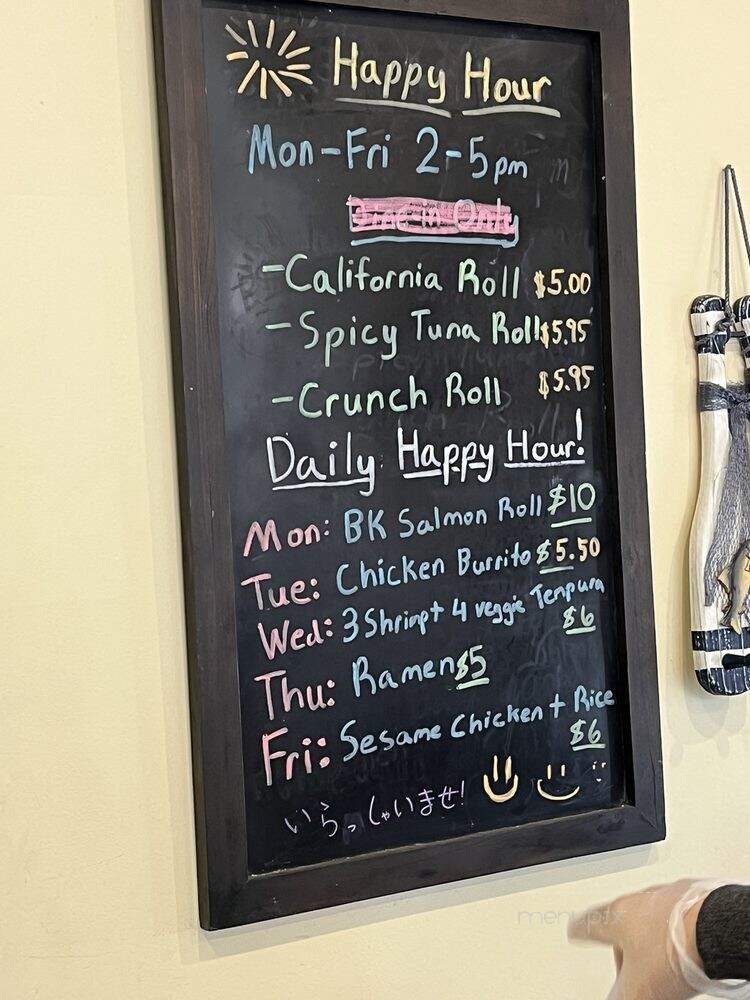 Happy Hour
Mon-Fri 2-5pm
Dine in Only
-California Roll $5.00
-Spicy Tuna Roll $5.95
-Crunch Roll $5.95
Daily Happy Hour!
Mon: BK Salmon Roll $10
Tue: Chicken Burrito $5.50
Wed: 3 Shrimp + 4 veggie Tempura
$6
Thu: Ramen $5
Fri: Sesame Chicken + Rice
$6
いらっしゃいませ!
menupix